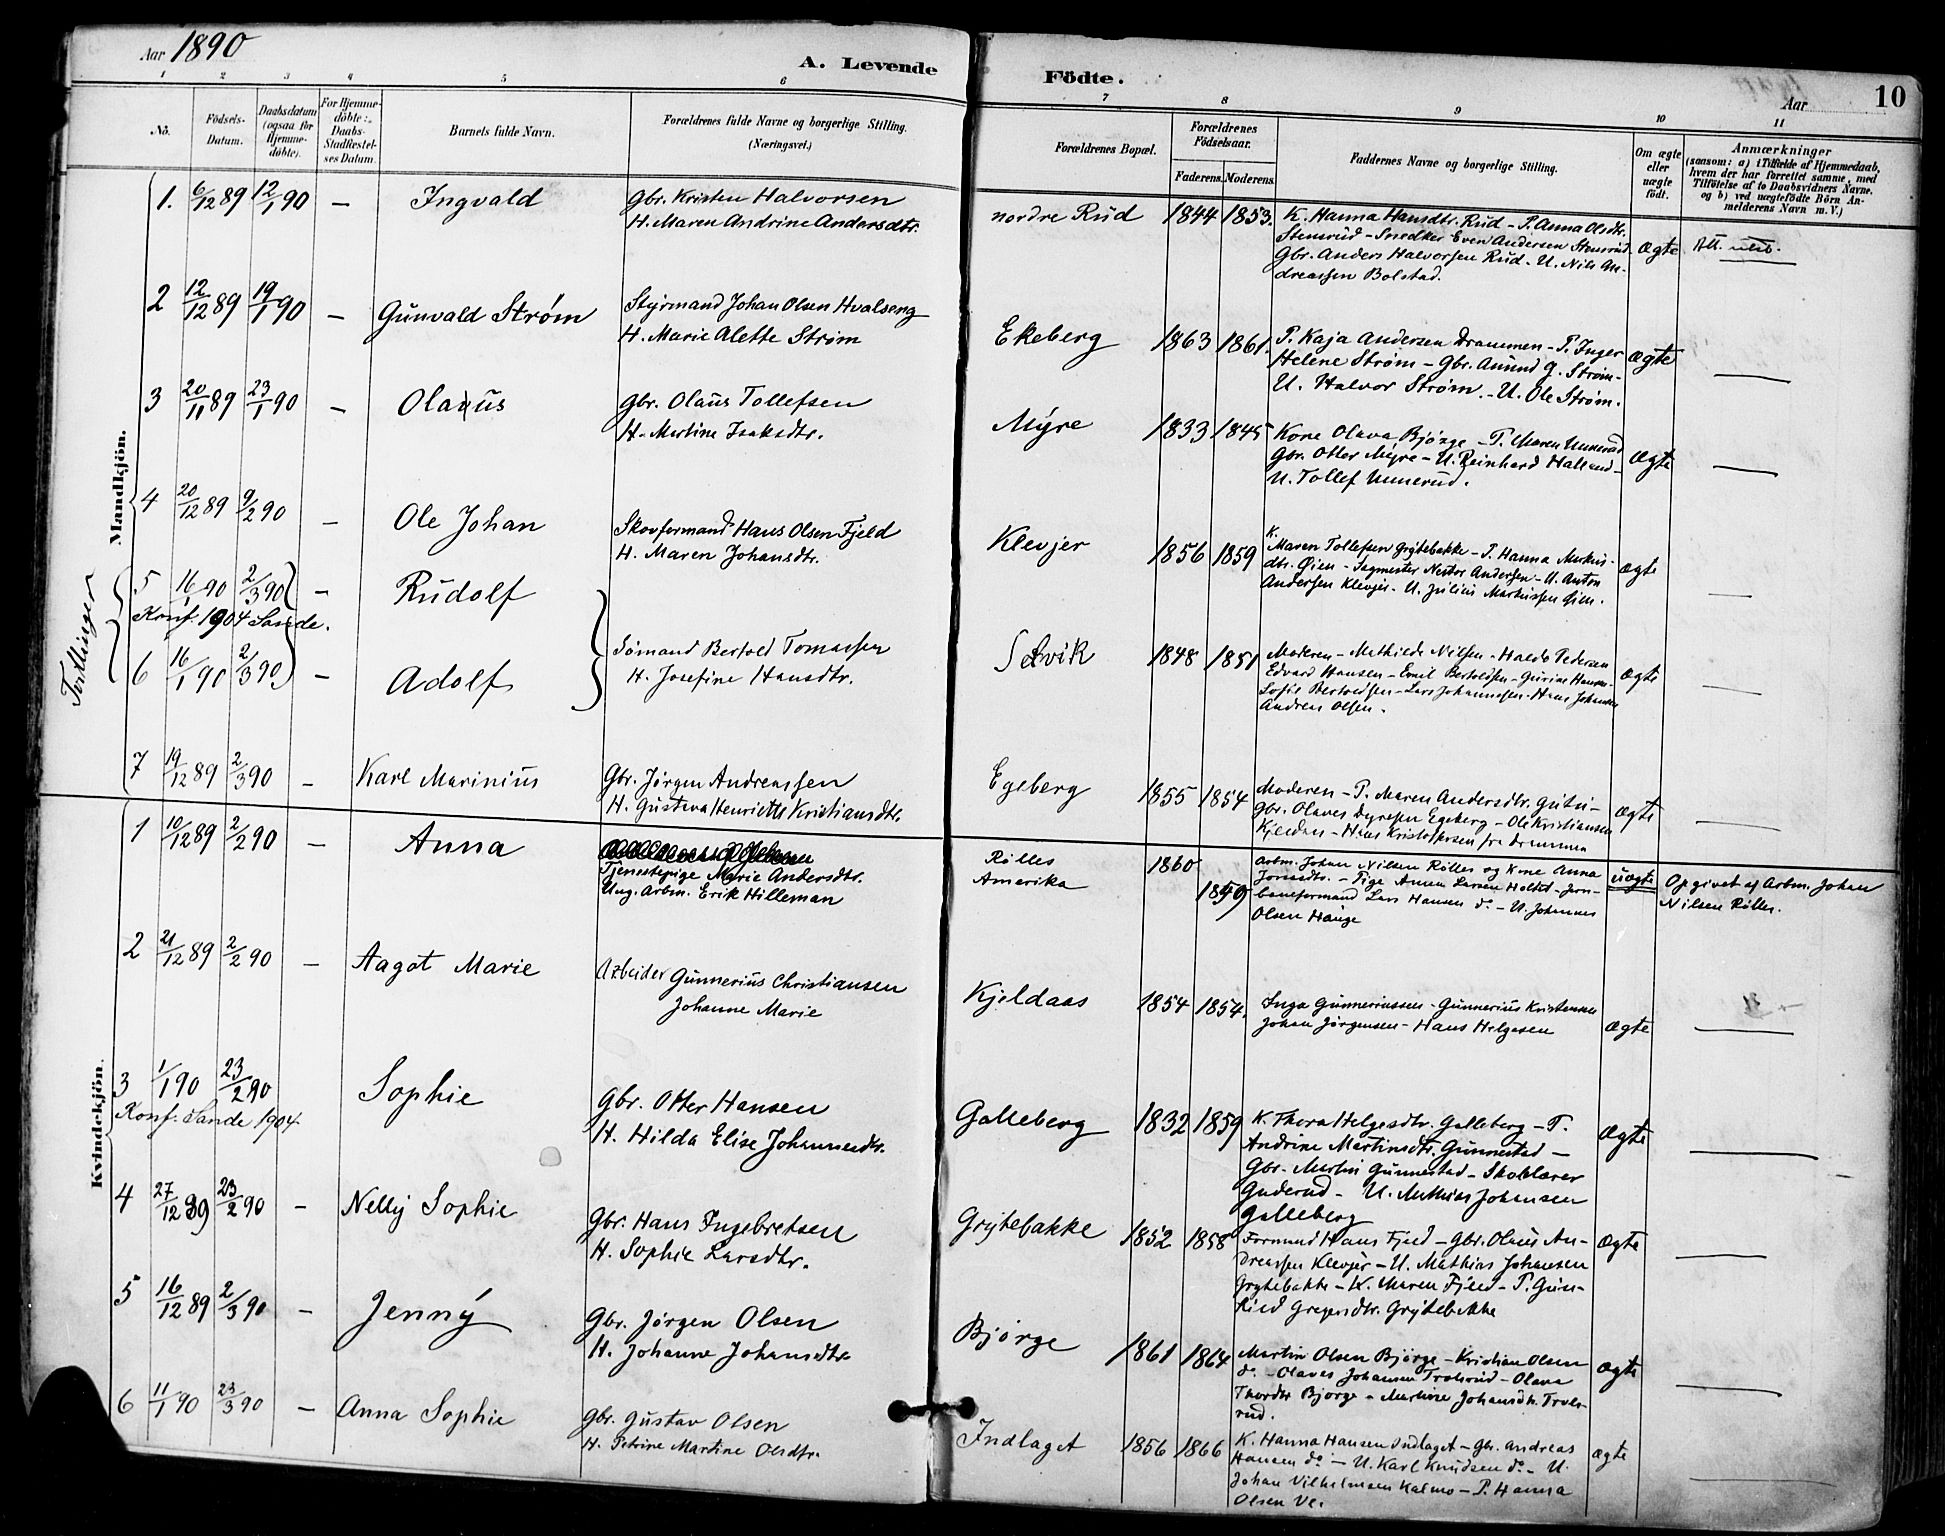 Aar 1890
A. Levende
Födte.
Aar
10
1 2 3 4 5 6 7 8 9 10 11
No.
Födsels-
Datum.
Daabsdatum
(ogsaa for
Hjemme-
döbte).
For Hjemme-
döbte:
Daabs-
Stadfestel-
ses Datum.
Barnets fulde Navn.
Forældrenes fulde Navne og borgerlige Stilling.
(Næringsvei.)
Forældrenes Bopæl.
Forældrenes
Födselsaar.
Faderens. Moderens.
Faddernes Navne og borgerlige Stilling.
Om ægte
eller
uægte
födt.
Anmærkninger
(saasom: a) i Tilfælde af Hjemmedaab,
hvem der har forrettet samme, med
Tilföielse af to Daabsvidners Navne,
og b) ved uægtefödte Börn An-
melderens Navn m. V.)
Mandkjön.
1. 6/12 89 12/1 90 — Ingvald
Gbr. Kristen Halvorsen
H. Maren Andrine Andersdtr.
nordre Rud 1844 1853.
K. Hanna Hansdtr. Rud – P. Anna Olsdtr.
Stensrud – Snedker Even Andersen Stensrud
Gbr. Anders Halvorsen Rud – U. Nils An-
dreassen Bolstad.
Ægte
2 12/12 89 19/1 90 — Gunvald Strøm
Styrmand Johan Olsen Hvalseng
H. Marie Alette Strøm
Ekeberg 1863 1861.
P. Kaja Andersen Drammen – P. Inger
Helene Strøm – Gbr. Amund G. Strøm –
U. Halvor Strøm – U. Ole Strøm.
Ægte —
3 20/11 89 23/1 90 — Olaus
Gbr. Olaus Tollefsen
H. Martine Isaksdtr.
Myre 1833 1845
Kone Olava Bjørge – P. Maren Unnerud
Gbr. Otter Myre – U. Reinhard Halland –
U. Tollef Unnerud.
Ægte —
4 20/12 89 9/2 90 — Ole Johan
Skovformand Hans Olsen Fjeld
H. Maren Johansdtr.
Klevjer 1856 1859
K.
Maren Tollefsen Grytebakke – P. Hanna Markus-
dtr. Øien – Sagmester Nestor Andersen – U. Anton
Andersen Klevjer – U. Julius Markussen Øien.
Ægte —
Tvillinger
5 16/1 90 2/3 90 — Rudolf
Konf. 1904 Sande.
6 16/1 90 2/3 90 — Adolf
Sømand Bertold Tomassen
H. Josefine Hansdtr.
Selvik 1848 1851
Moderen – Mathilde Nilsen – Haldo Pedersen
Edvard Hansen – Emil Bertoldsen – Gurine Hansen –
Sofie Bertoldsen – Lars Johannesen – Hans Johansen
Andreas Olsen.
Ægte —
7 19/12 89 2/3 90 — Karl Marinius
Gbr. Jørgen Andreassen
H. Gustava Henriette Kristiansdtr.
Egeberg 1855 1854
Moderen – P. Maren Andersdtr.
Gbr. Olaves Dyresen Egeberg – Ole Kristiansen
Kjeldaas – Hans Kristoffersen fra Drammen
Ægte —
Kvindekjön.
1 10/12 89 2/2 90 — Anna
Tjenestepige Marie Andersdtr.
Ung. Arbm. Erik Hilleman
Rølles
Amerika
1860
1859
Arbm. Johan Nilsen Rølles og Kone Anna
Jonasdtr. – Pige Anna Larsen Holtet – Jern-
baneformand Lars Hansen do – U. Johannes
Olsen Hauge
uægte
Opgivet af Arbm. Johan
Nilsen Rølles.
2 21/12 89 2/2 90 — Aagot Marie
Arbeider Gunnerius Christiansen
Johanne Marie
Kjeldaas 1854 1854.
Inga Gunneriussen – Gunnerius Kristensen
Johan Jørgensen – Hans Helgesen
Ægte —
3 1/1 90 23/2 90 Sophie
Konf. Sande 1904.
Gbr. Otter Hansen
H. Hilda Elise Johannesdtr.
Galleberg 1832 1859
K. Thora Helgesdtr. Galleberg – P.
Andrine Martinsdtr. Gunnestad –
Gbr. Martin Gunnestad – Skolelærer
Guderud – U. Mathias Johansen
Galleberg
Ægte —
4 27/12 89 23/2 90 — Nelly Sophie
Gbr. Hans Ingebretsen
H. Sophie Larsdtr.
Grytebakke 1852 1858
Formand Hans Fjeld – Gbr. Olaus An-
dreassen Klevjer – U. Mathias Johansen
Grytebakke – K. Maren Fjeld – P. Gun-
hild Gregersdtr. Grytebakke
Ægte —
5 16/12 89 2/3 90 — Jenny
Gbr. Jørgen Olsen
H. Johanne Johansdtr.
Bjørge 1861 1864
Martin Olsen Bjørge – Kristian Olsen
do – Olaves Johansen Trolsrud – Olava
Thordtr Bjørge – Martine Johansdtr. Trols-
rud.
Ægte —
6 11/1 90 23/3 90 — Anna Sophie
Gbr. Gustav Olsen
H. Petrine Martine Olsdtr.
Indlaget 1856 1866
K. Hanna Hansen Indlaget – Gbr. Andreas
Hansen do – U. Karl Knudsen do – U.
Johan Vilhelmsen Kalmo – P. Hanna
Olsen Ve.
Ægte —